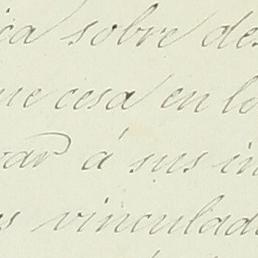 ica sobre des
ue cesa en lo
var á sus in
s vinculad